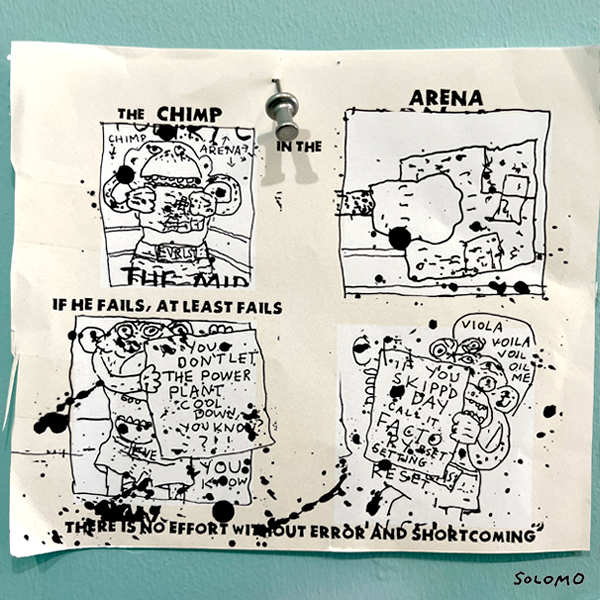 THE CHIMP
IN THE
ARENA
CHIMP
ARENA?
EVRLST
THE MID
IF HE FAILS, AT LEAST FAILS
YOU
DON'T LET
THE POWER
PLANT
COOL
DOWN,
YOU KNOW
?!!
YOU
KNOW
VIOLA
VOILA
VOIL
OIL
ME
IF YOU
SKIPPD
DAY
CALL IT
FACTO
RY
SETTING
RESET
THERE IS NO EFFORT WITHOUT ERROR AND SHORTCOMING"
SOLOMO